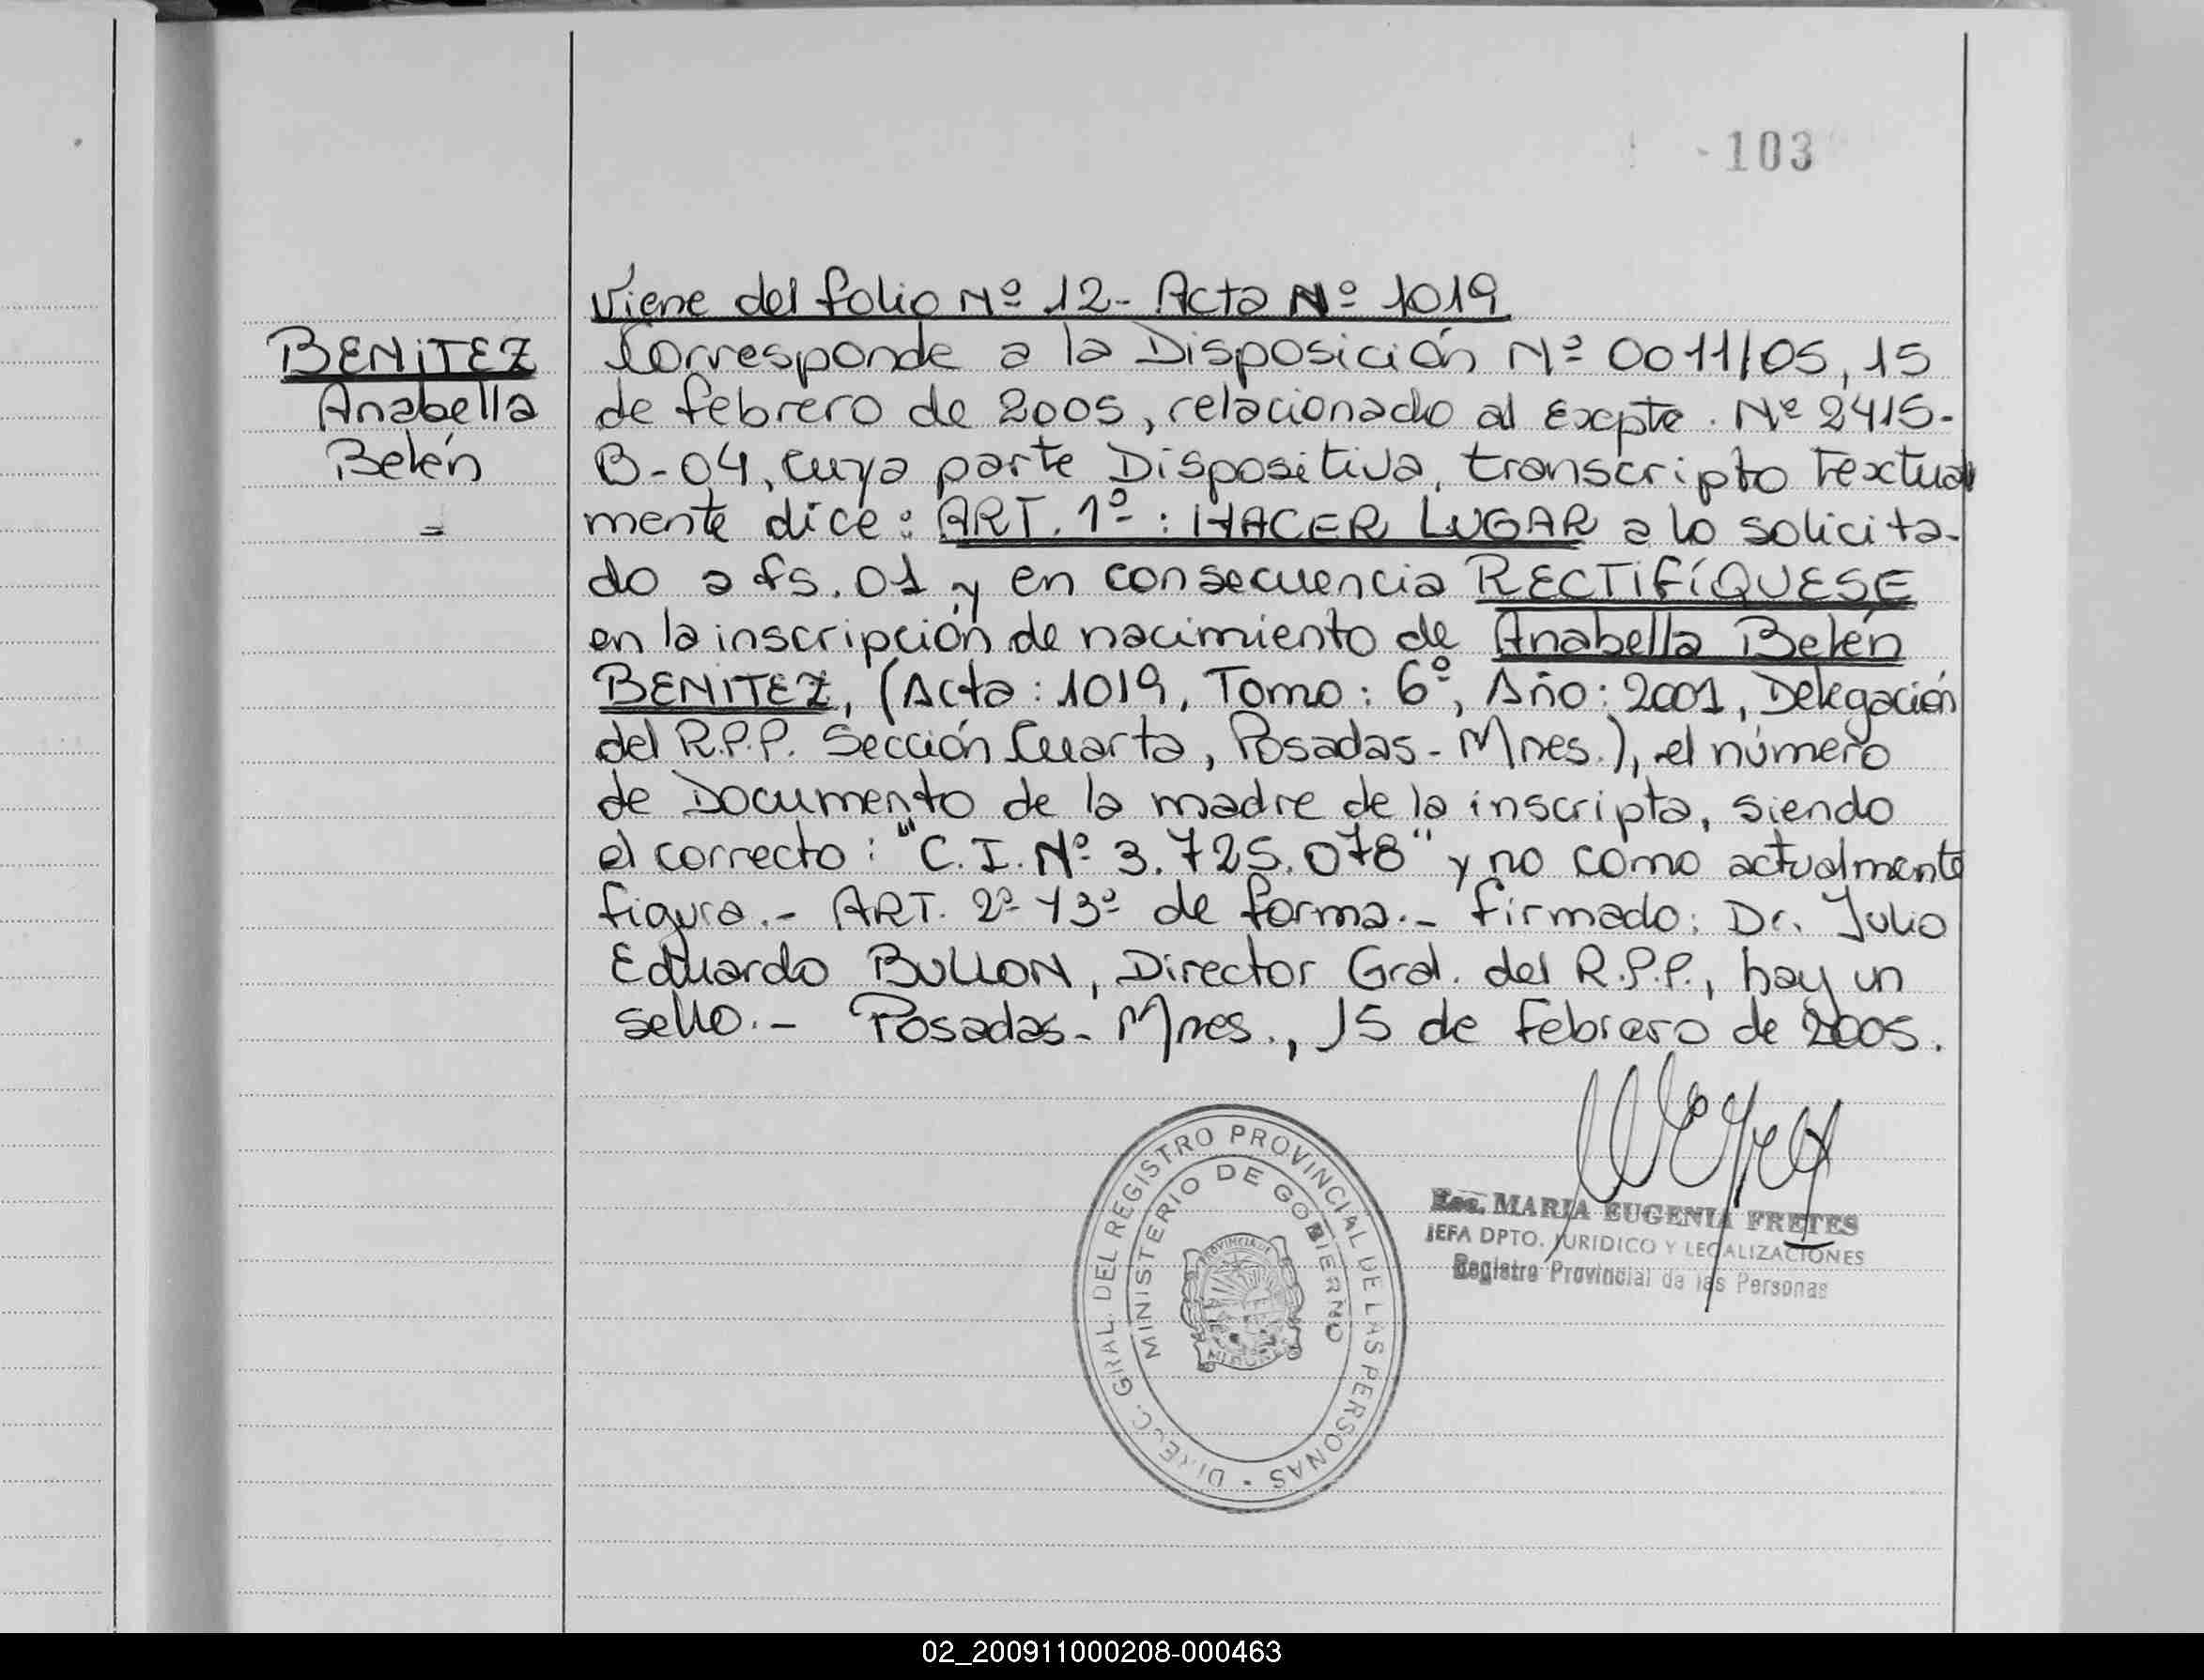 103
BENITEZ
Anabella
Belén
=
Viene del folio Nº 12- Acta Nº 1019
Corresponde a la Disposición Nº 0011/05, 15
de febrero de 2005, relacionado al Excpte. Nº 2415-
B-04, cuya parte Dispositiva, transcripto Textual
mente dice: ART. 1º: HACER LUGAR a lo solicita-
do a fs. 01 y en consecuencia RECTIFÍQUESE
en la inscripción de nacimiento de Anabella Belén
BENITEZ, (Acta: 1019, Tomo: 6º, Año: 2001, Delegación
del R.P.P. Sección Cuarta, Posadas- Mnes.), el número
de Documento de la madre de la inscripta, siendo
el correcto: "C.I. Nº 3.725.078" y no como actualmente
figura.- ART. 2º y 3º de forma.- Firmado: Dr. Julio
Eduardo BULLON, Director Gral. del R.P.P., hay un
sello.- Posadas- Mnes., 15 de Febrero de 2005.
DIREC. GRAL. DEL REGISTRO PROVINCIAL DE LAS PERSONAS
MINISTERIO DE GOBIERNO
PROVINCIA DE
MISIONES
Esc. MARIA EUGENIA FRETES
JEFA DPTO. JURIDICO Y LEGALIZACIONES
Registro Provincial de las Personas
02_200911000208-000463